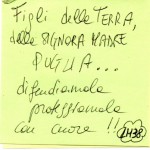 Figli della TERRA,
della SIGNORA MADRE
PUGLIA...
difendiamola
proteggiamola
con cuore !!